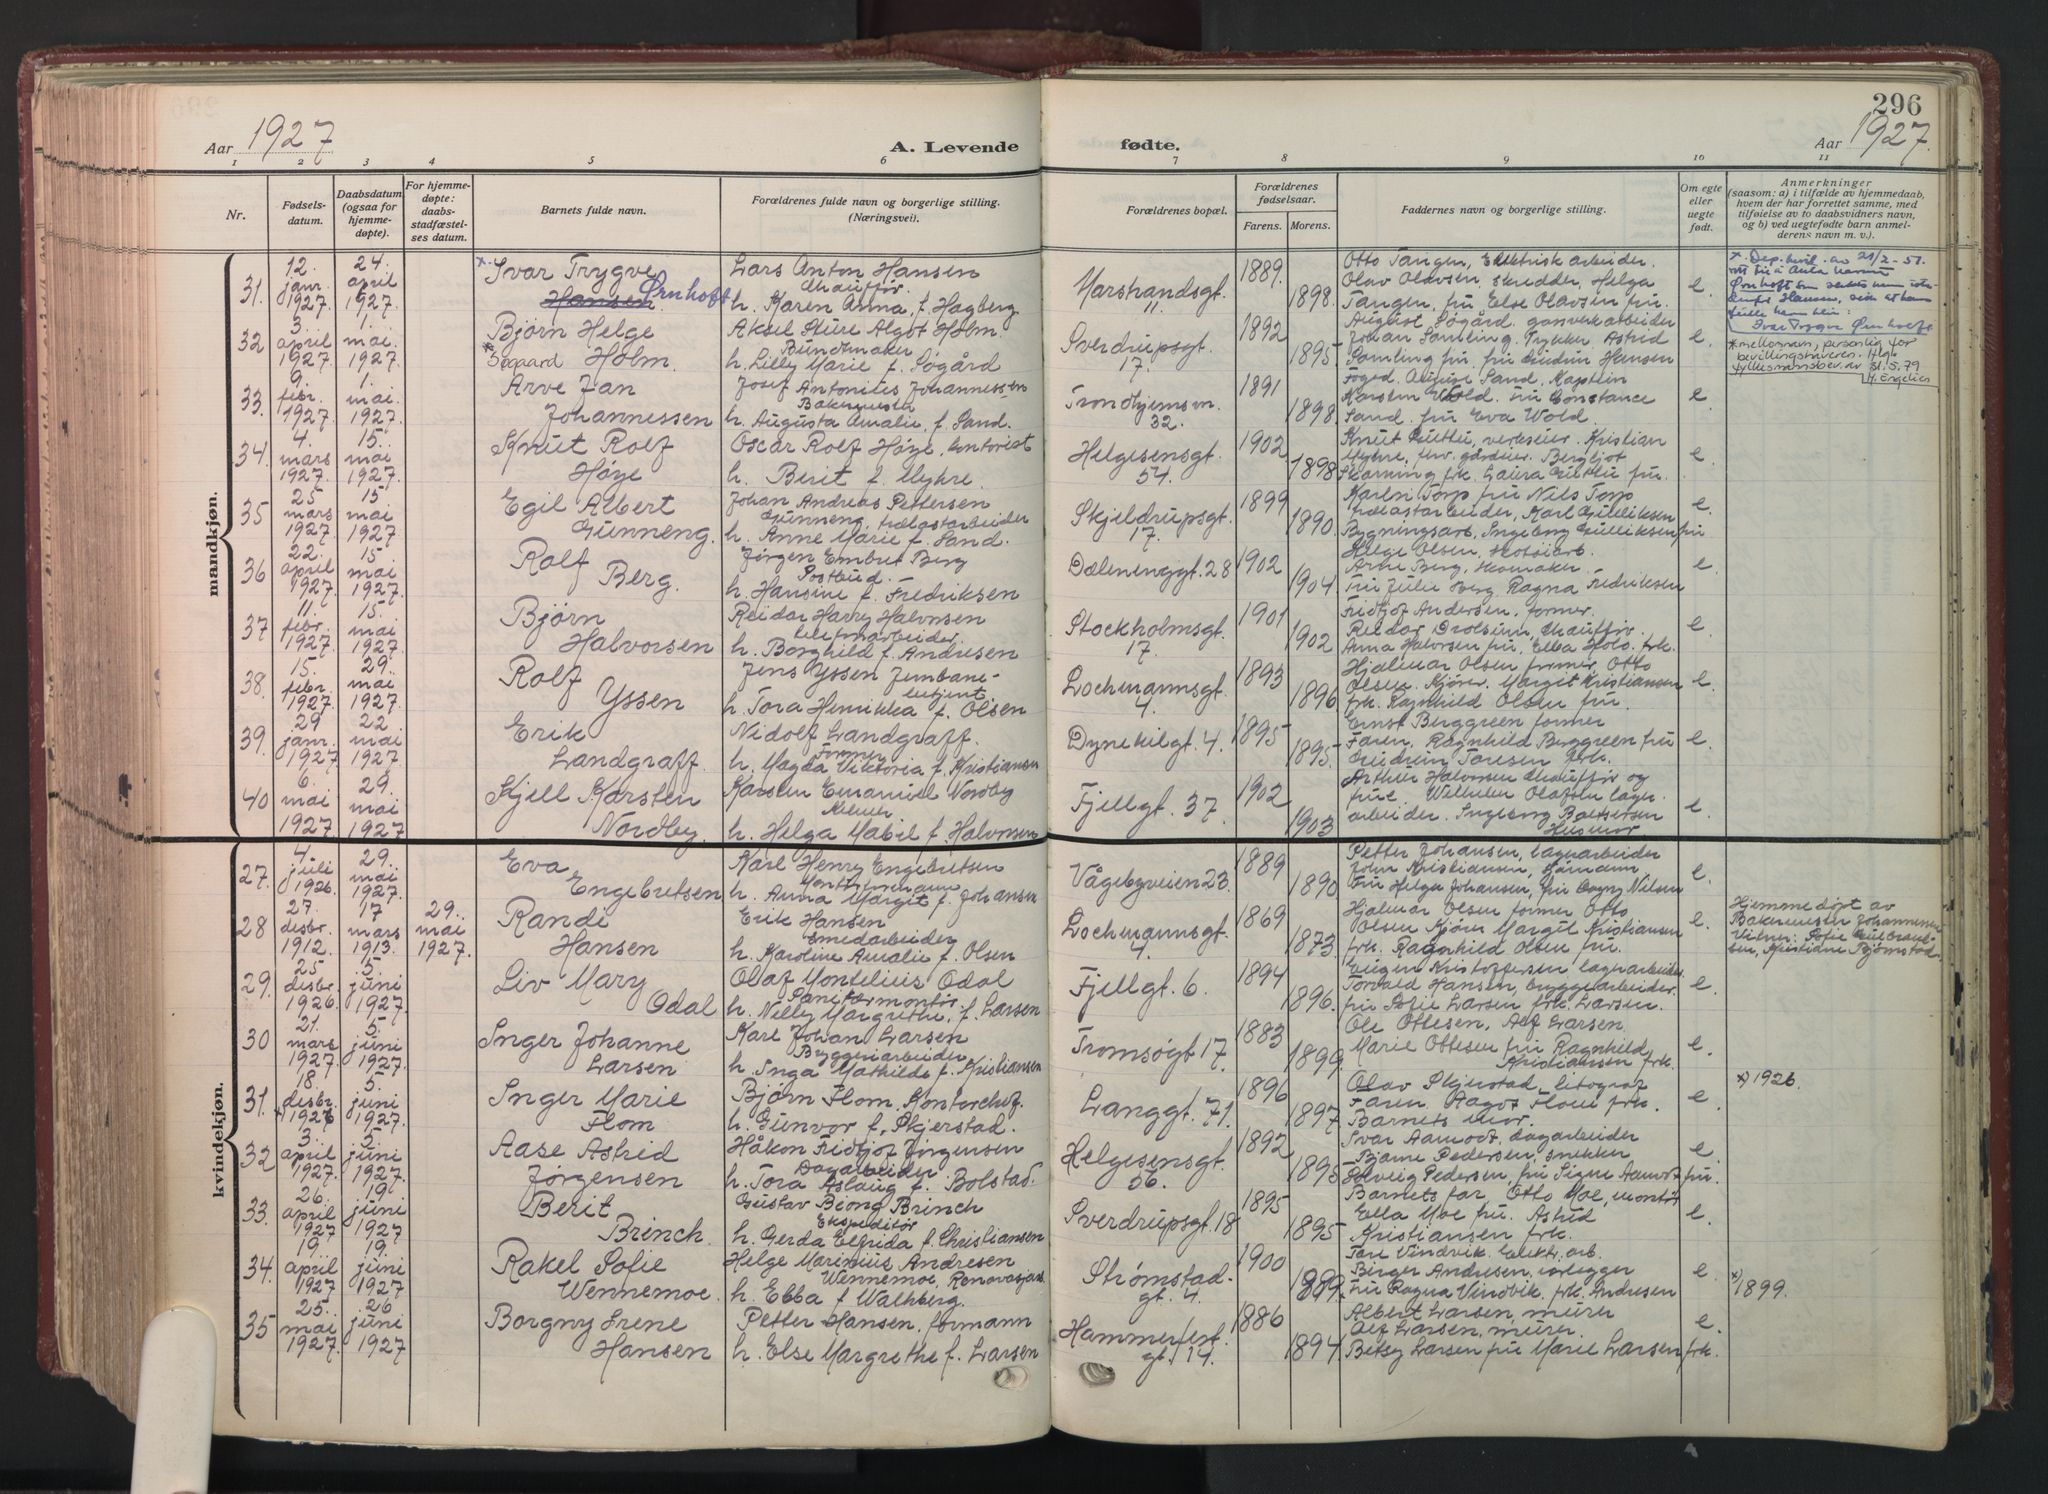 296
Aar 1927
A. Levende
fødte.
Aar 1927.
1 2 3 4 5 6 7 8 9 10 11
Nr.
Fødsels-
datum.
Daabsdatum
(ogsaa for
hjemme-
døpte).
For hjemme-
døpte:
daabs-
stadfæstel-
ses datum.
Barnets fulde navn.
Forældrenes fulde navn og borgerlige stilling.
(Næringsvei).
Forældrenes bopæl.
Forældrenes
fødselsaar.
Farens. Morens.
Faddernes navn og borgerlige stilling.
Om egte
eller
uegte
født.
Anmerkninger
(saasom: a) i tilfælde av hjemmedaab,
hvem der har forrettet samme, med
tilføielse av to daabsvidners navn,
og b) ved uegtefødte barn anmel-
derens navn m. v.).
mandkjøn.
31. 12. janr. 1927. 24. april 1927.
* Ivar Trygve
Hansen Ørnhoft
Lars Anton Hansen
Chauffør
h. Karen Anna, f. Hagberg
Marstrandsgt.
11.
1889. 1898.
Otto Tangen, Elektrisk arbeider.
Olav Olavsen, skredder, Helga
Tangen, fru Else Olavsen fru.
e.
* Dep. bevil. av 21/2 - 51.
Ørnhoft
Hansen,
Ivar Trygve Ørnhoft
32 3. april 1927 1. mai. 1927.
Bjørn Helge
* Søgaard Holm.
Aksel Sture Algot Holm.
Bundtmaker
h. Lilly Marie f. Søgård
Sverdrupsgt.
17.
1892 1895
August Søgård. gasverkarbeider
Johan Samling. Trykker, Astrid
Samling fru fru Gudrun Hansen
e.
* mellomnavn, personlig for
bevillingshaveren. Iflg.
fylkesmannsbev. av 31.5.79
33. 9. febr. 1927 1. mai. 1927.
Arve Jan
Johannessen
Josef Antonius Johannessen
Bakermester
h. Augusta Amalie, f. Sand.
Trondhjemsvn.
32.
1891 1898
Foged. August Sand, Kaptein
Karsten Wold. fru Constance
Sand. fru Eva Wold.
e
34. 4. mars 1927. 15. mai 1927.
Knut Rolf
Høye
Oscar Rolf Høye, kontorist
h. Berit f. Myhre.
Helgesensgt.
54.
1902. 1898
Knut Guttu, verkseier. Kristian
Myhre, fhv. gårdeier. Bergljot
Skarning frk. Laura Guttu fru.
e.
35 25 mars 1927 15 mai 1927
Egil Albert
Gunneng.
Johan Andreas Pettersen
Gunneng, trælastarbeider
h. Anne Marie f. Sand.
Skjeldrupsgt.
17.
1899 1890.
Karen Torp fru Nils Torp
trælastarbeider, Karl Gulliksen
Bygningsarb. Ingeborg Gulliksen fru
e.
36 22. april 1927. 15 mai 1927.
Rolf
Berg.
Jørgen Embret Berg
Postbud.
h. Hansine f. Fredriksen
Dæleninggt. 28
1902 1904.
Helge Olsen, skotøiarb.
Arne Berg, skomaker.
Fru Julie Berg Ragna Fredriksen
e.
37 11. febr. 1927. 15. mai 1927.
Bjørn
Halvorsen
Reidar Harry Halvorsen
telefonarbeider.
h. Borghild f. Andresen
Stockholmsgt.
17.
1901 1902
Fridtjof Andersen, former.
Reidar Drolsum, chauffør.
Anna Halvorsen fru, Ebba Holo. frk.
e.
38. 15. febr. 1927 29. mai 1927.
Rolf
Yssen
Jens Yssen Jernbane-
betjent.
h. Tora Henrikka f. Olsen
Lochmannsgt.
4.
1893 1896
Hjalmar Olsen former, Otto
Olsen. Kjører. Margit Kristiansen
frk. Ragnhild Olsen fru.
e.
39. 29 janr. 1927 22. mai 1927
Erik
Landgraff.
Nidolf Landgraff.
Former
h. Magda Viktoria f. Kristiansen
Dynekilgt. 4.
1895 1895.
Ernst Berggreen former
Faren. Ragnhild Berggreen fru
Gudrun Toresen frk.
e.
40 6. mai 1927 29. mai 1927
Kjell Karsten
Nordby.
Karsten Emanuel Nordby
Kelner
h. Helga Mabel f. Halvorsen
Fjellgt. 37.
1902 1903
Arthur Halvorsen Chauffør og
frue Wilhelm Olafsen lager.
arbeider. Ingeborg
Husmor
e.
kvindekjøn.
27. 4. juli 1926. 29. mai 1927.
Eva
Engebretsen
Karl Henry Engebretsen
h. Anna Margit f. Johansen
Vågebyveien 23.
1889 1890
Petter Johansen, lagerarbeider
John Kristiansen,
Fru Helga Johansen, fru Dagny Nilsen
e.
28 27. desbr. 1912. 17 mars 1913. 29. mai 1927.
Randi
Hansen
Erik Hansen
smedarbeider
h. Karoline Amalie f. Olsen
Lochmannsgt.
4.
1869 1873
Hjalmar Olsen former Otto
Olsen Kjører Margit Kristiansen
frk. Ragnhild Olsen fru.
e.
Hjemmedøpt av
Bakermester Johannessen
Vidner: Sofie Gulbrand-
sen, Kristiane Bjørnstad.
29. 25 desbr. 1926 5. juni 1927.
Liv Mary
Odal
Olaf Montelius Odal
Sanitærmontør
h. Nelly Margrethe, f. Larsen
Fjellgt. 6.
1894 1896.
Eugen Kristoffersen lagerarbeider.
Torvald Hansen, bryggearbeider.
fru Sofie Larsen frk. Larsen.
e.
30 21. mars 1927. 5. juni 1927.
Inger Johanne
Larsen
Karl Johan Larsen
Bryggeriarbeider
h. Inga Mathilde f. Kristiansen
Tromsøgt 17.
1883 1899.
Ole Ottesen, Alf Larsen.
Marie Ottesen fru Ragnhild
Kristiansen frk.
e.
31. 18. desbr. x) 1926 5. juni 1927.
Inger Marie
Flom
Bjørn Flom, Kontorchef.
h. Gunvor f. Skjerstad.
Langgt. 71.
1896 1897
Olav Skjerstad, litograf
Faren Aagot Flom frk.
Barnets Mor.
e.
x) 1926.
32 3. april 1927. 5. juni 1927.
Aase Astrid
Jørgensen
Håkon Fridtjof Jørgensen
Dagarbeider
h. Tora Aslaug f. Bolstad.
Helgesensgt.
56.
1892 1895
Ivar Aamodt, dagarbeider
Bjarne Pedersen, snekker
Solveig Pedersen, fru Signe Aamodt fru.
e.
33. 26. april 1927 19. juni 1927
Berit
Brinch.
Gustav Bjong Brinch
Ekspeditør
h. Gerda Elfrida f. Christiansen
Sverdrupsgt. 18
1895 1895
Barnets far, Otto Moe, montør
Ella Moe fru. Astrid
Kristiansen frk.
e.
34. 19. april 1927 19. juni 1927
Rakel Sofie
Wennemoe.
Helge Marinius Andresen
Wennemoe, Renovasjonsarb.
h. Ebba f Wahlberg.
Strømstad-
gt. 4.
1900
Tore Vindvik. Elektr. arb.
Birger Andresen, rørlegger
Fru Ragna Vindvik. frk. Andresen
e.
x) 1899.
35 25. mai 1927. 26 juni 1927
Borgny Irene
Hansen
Petter Hansen, formann
h. Else Margrethe f. Larsen
Hammerfest
gt. 14.
1886 1894
Albert Larsen, murer
Alf Larsen, murer.
Betsy Larsen fru Marie Larsen frk.
e.